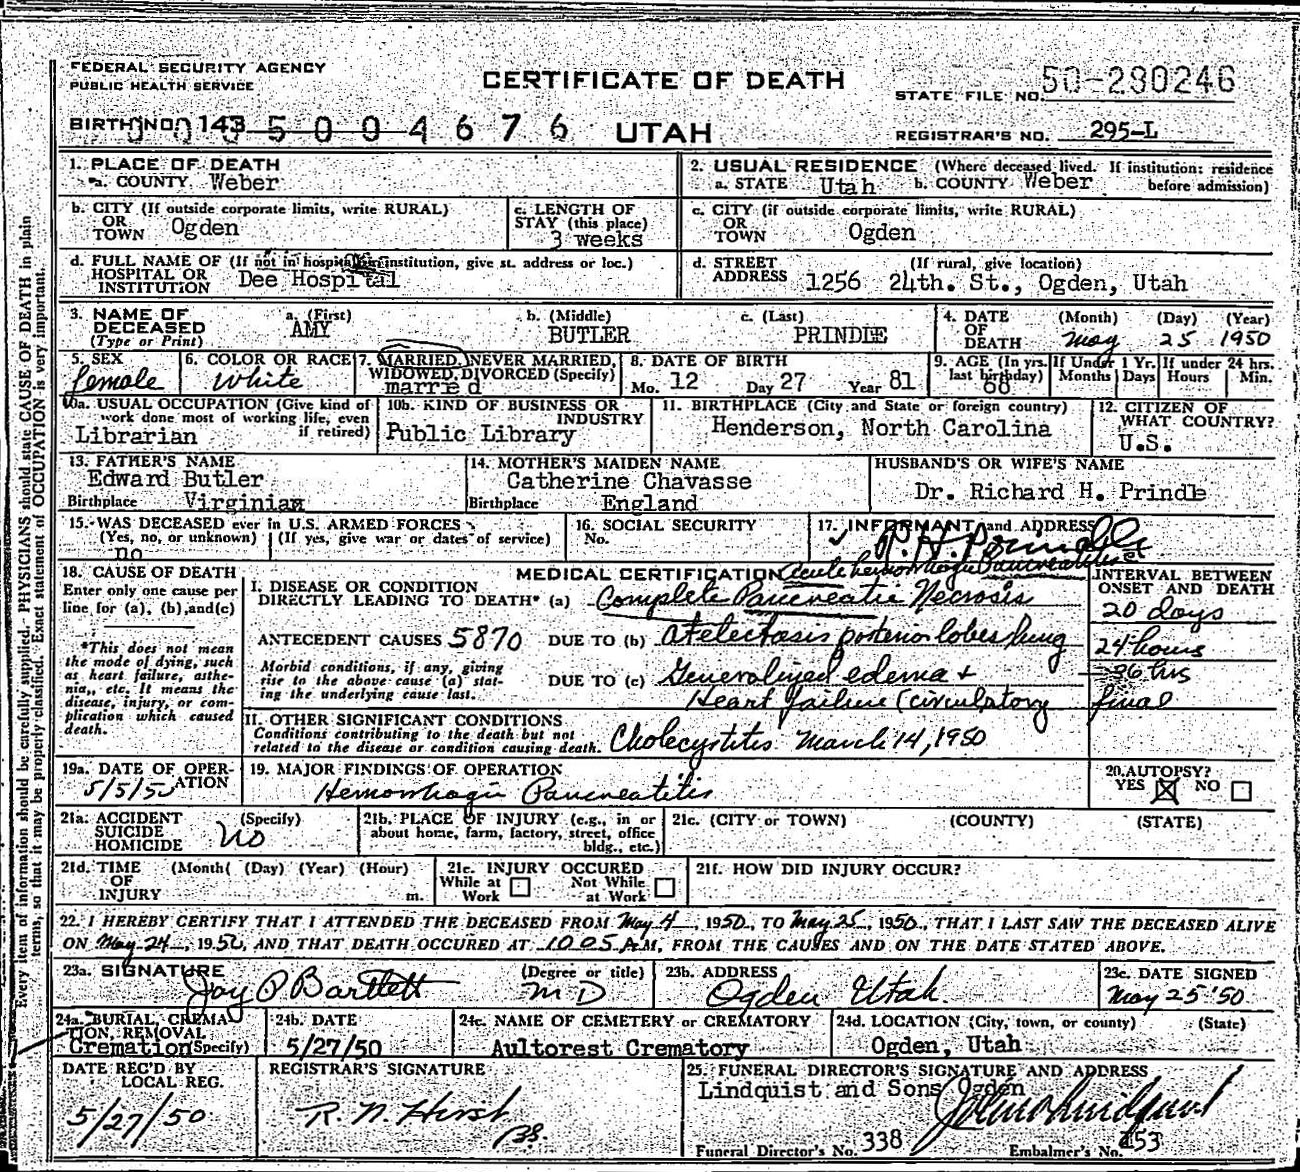 FEDERAL SECURITY AGENCY
PUBLIC HEALTH SERVICE
CERTIFICATE OF DEATH
STATE FILE NO. 50-280246
BIRTH NO. 143
UTAH
REGISTRAR'S NO. 295-L
1. PLACE OF DEATH
a. COUNTY Weber
2. USUAL RESIDENCE (Where deceased lived. If institution: residence before admission)
a. STATE Utah b. COUNTY Weber
b. CITY (If outside corporate limits, write RURAL)
OR
TOWN Ogden
c. LENGTH OF
STAY (this place)
3 weeks
c. CITY (if outside corporate limits, write RURAL)
OR
TOWN Ogden
d. FULL NAME OF (If not in hospital or institution, give st. address or loc.)
HOSPITAL OR
INSTITUTION Dee Hospital
d. STREET (If rural, give location)
ADDRESS 1256 24th. St., Ogden, Utah
3. NAME OF
DECEASED
(Type or Print)
a. (First) b. (Middle) c. (Last)
AMY BUTLER PRINDLE
4. DATE (Month) (Day) (Year)
OF
DEATH May 25 1950
5. SEX
female
6. COLOR OR RACE
white
7. MARRIED, NEVER MARRIED,
WIDOWED, DIVORCED (Specify)
married
8. DATE OF BIRTH
Mo. 12 Day 27 Year 81
9. AGE (In yrs. last birthday) 68
If Under 1 Yr. Months Days
If under 24 hrs. Hours Min.
10a. USUAL OCCUPATION (Give kind of
work done most of working life, even
if retired)
Librarian
10b. KIND OF BUSINESS OR
INDUSTRY
Public Library
11. BIRTHPLACE (City and State or foreign country)
Henderson, North Carolina
12. CITIZEN OF
WHAT COUNTRY?
U.S.
13. FATHER'S NAME
Edward Butler
Birthplace Virginia
14. MOTHER'S MAIDEN NAME
Catherine Chavasse
Birthplace England
HUSBAND'S OR WIFE'S NAME
Dr. Richard H. Prindle
15. WAS DECEASED ever in U.S. ARMED FORCES
(Yes, no, or unknown) (If yes, give war or dates of service)
no
16. SOCIAL SECURITY
No.
17. INFORMANT and ADDRESS
R. H. Prindle
18. CAUSE OF DEATH
Enter only one cause per
line for (a), (b), and (c)
*This does not mean
the mode of dying, such
as heart failure, asthe-
nia, etc. It means the
disease, injury, or com-
plication which caused
death.
MEDICAL CERTIFICATION Acute hemorrhagic Pancreatitis
I. DISEASE OR CONDITION
DIRECTLY LEADING TO DEATH* (a) Complete Pancreatic Necrosis
ANTECEDENT CAUSES 5870 DUE TO (b) Atelectasis posterior lobes lung
Morbid conditions, if any, giving
rise to the above cause (a) stat-
ing the underlying cause last.
DUE TO (c) Generalized edema +
Heart failure (circulatory
INTERVAL BETWEEN
ONSET AND DEATH
20 days
24 hours
36 hrs
final
II. OTHER SIGNIFICANT CONDITIONS
Conditions contributing to the death but not
related to the disease or condition causing death.
Cholecystitis March 14, 1950
19a. DATE OF OPER-
ATION
5/5/50
19. MAJOR FINDINGS OF OPERATION
Hemorrhagic Pancreatitis
20. AUTOPSY?
YES ☒ NO ☐
21a. ACCIDENT (Specify)
SUICIDE
HOMICIDE No
21b. PLACE OF INJURY (e.g., in or
about home, farm, factory, street, office
bldg., etc.)
21c. (CITY or TOWN) (COUNTY) (STATE)
21d. TIME (Month) (Day) (Year) (Hour)
OF
INJURY m.
21e. INJURY OCCURED
While at Work ☐ Not While at Work ☐
21f. HOW DID INJURY OCCUR?
22. I HEREBY CERTIFY THAT I ATTENDED THE DECEASED FROM May 4, 1950, TO May 25, 1950, THAT I LAST SAW THE DECEASED ALIVE
ON May 24, 1950, AND THAT DEATH OCCURED AT 10 05 A.M, FROM THE CAUSES AND ON THE DATE STATED ABOVE.
23a. SIGNATURE (Degree or title)
Jay P Bartlett M D
23b. ADDRESS
Ogden Utah.
23c. DATE SIGNED
May 25 '50
24a. BURIAL, CREMA-
TION, REMOVAL
Cremation (Specify)
24b. DATE
5/27/50
24c. NAME OF CEMETERY or CREMATORY
Aultorest Crematory
24d. LOCATION (City, town, or county) (State)
Ogden, Utah
DATE REC'D BY
LOCAL REG.
5/27/50
REGISTRAR'S SIGNATURE
R. N. Hirst
25. FUNERAL DIRECTOR'S SIGNATURE AND ADDRESS
Lindquist and Sons Ogden
Funeral Director's No. 338 Embalmer's No. 453
Every item of information should be carefully supplied. PHYSICIANS should state CAUSE OF DEATH in plain
terms, so that it may be properly classified. Exact statement of OCCUPATION is very important.